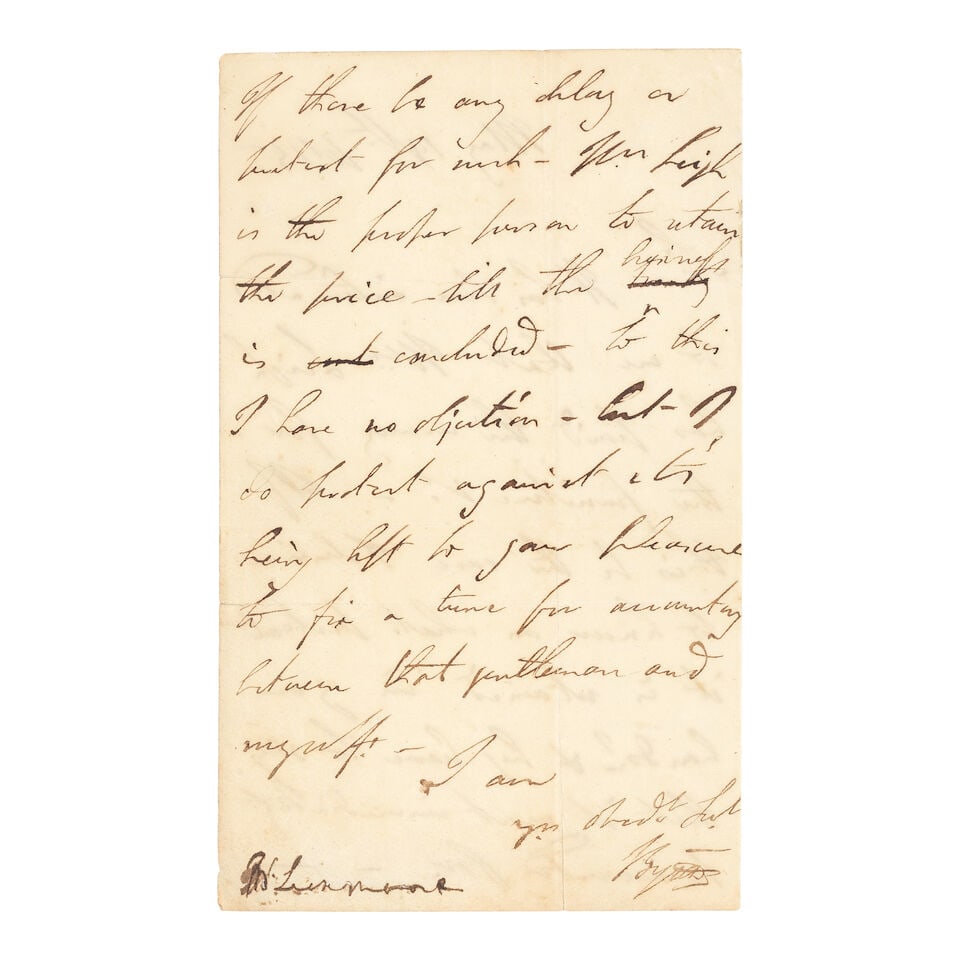 If there be any delay or
pretext for such – Mr Leigh
is the proper person to retain
the price – till the business
is concluded – to this
I have no objection – but – I
do protest against it's
being left to your pleasure
to fix a time for accounting
between that gentleman and
myself. –
I am
yrs obedt Sert
Byron